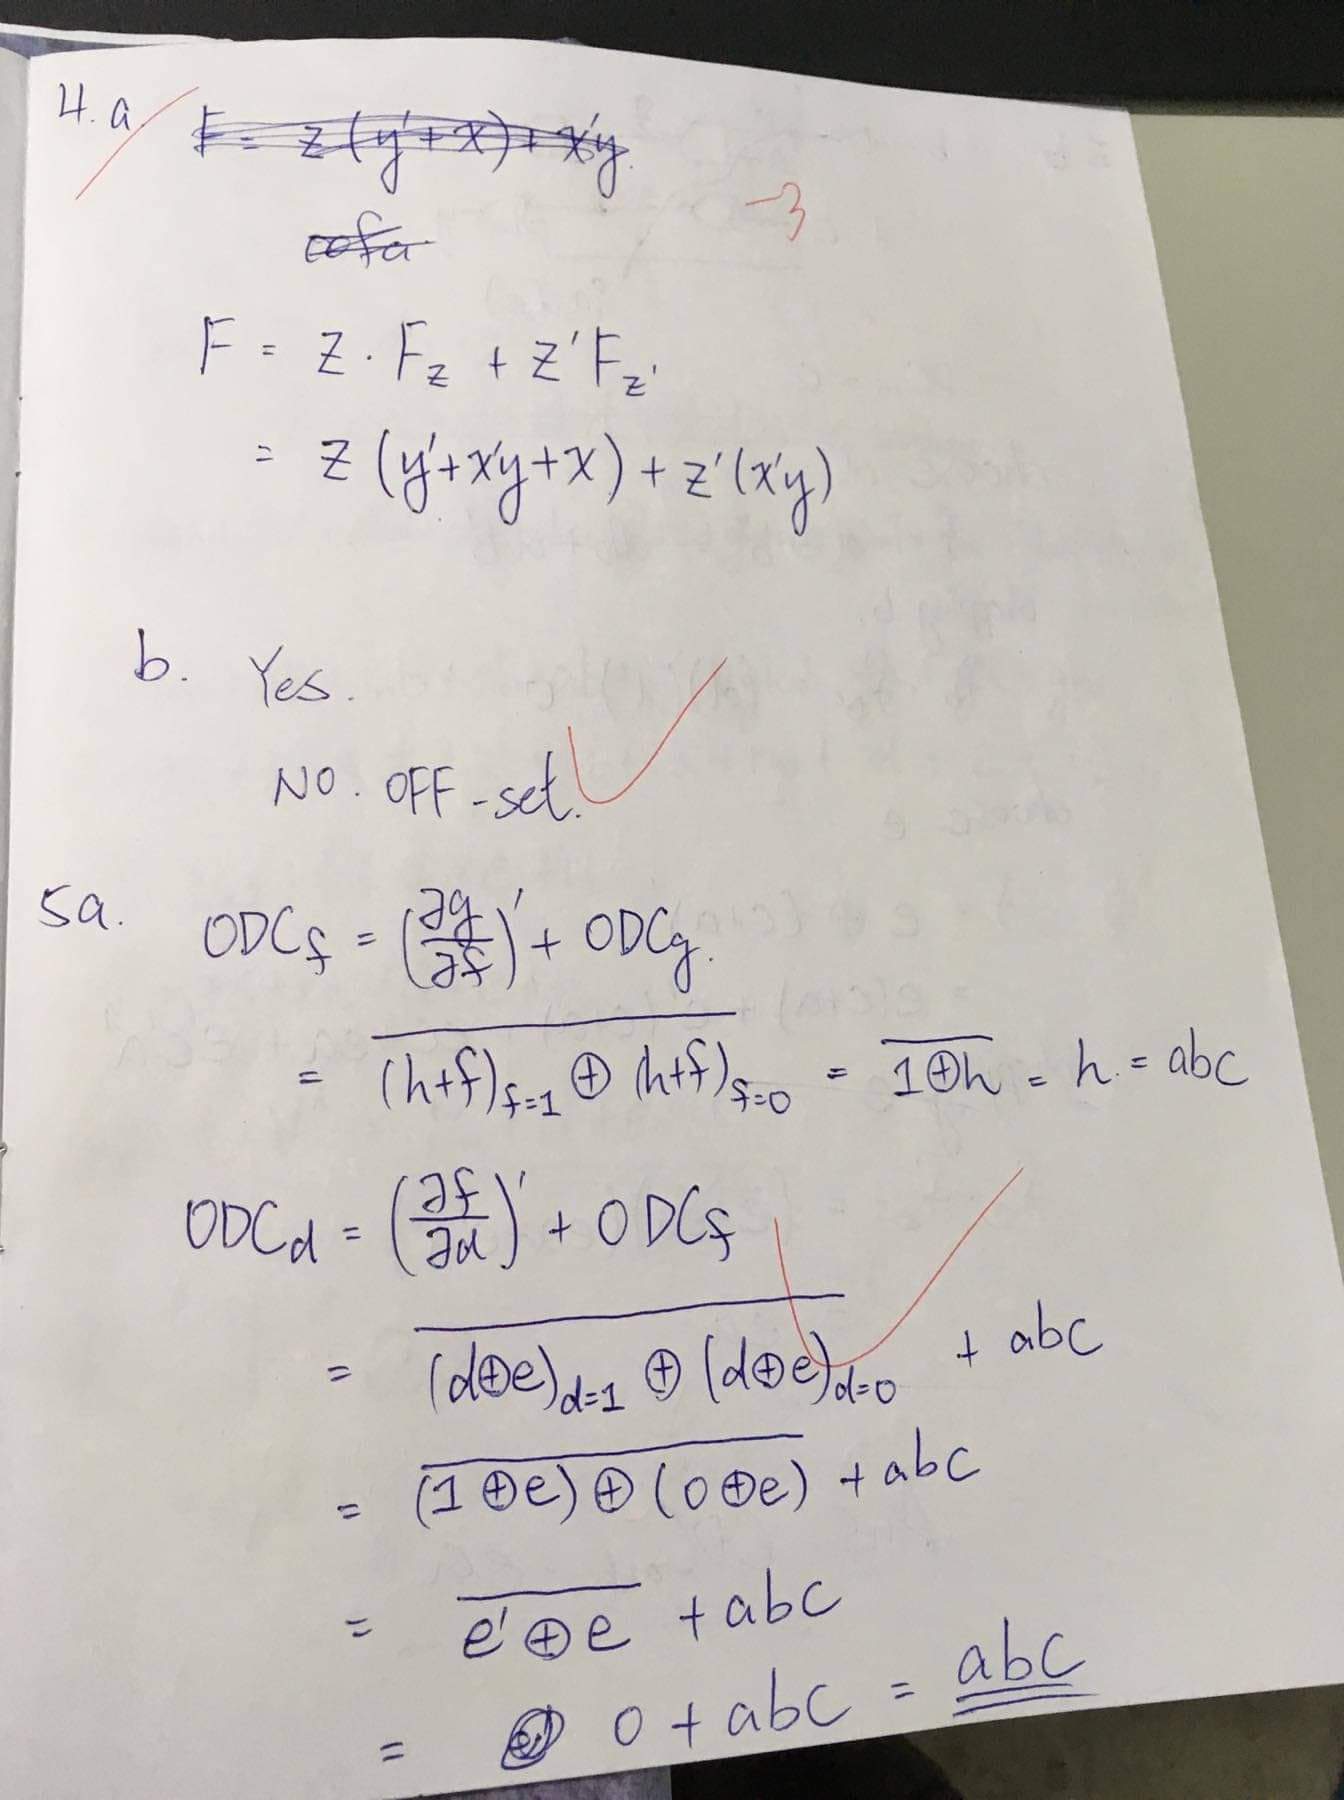 4. a F = z(y'+x)+x'y.
-3
cofa
F = z · F_z + z'F_z'
= z (y'+x'y+x) + z'(x'y)
b. Yes.
NO. OFF-set.
5a. ODC_f = (∂g/∂f)' + ODC_g.
= \overline{(h+f)_{f=1} ⊕ (h+f)_{f=0}} = \overline{1⊕h} = h. = abc
ODC_d = (∂f/∂d)' + ODC_f
= \overline{(d⊕e)_{d=1} ⊕ (d⊕e)_{d=0}} + abc
= \overline{(1⊕e)⊕(0⊕e)} + abc
= \overline{e'⊕e} + abc
= 0 + abc = abc